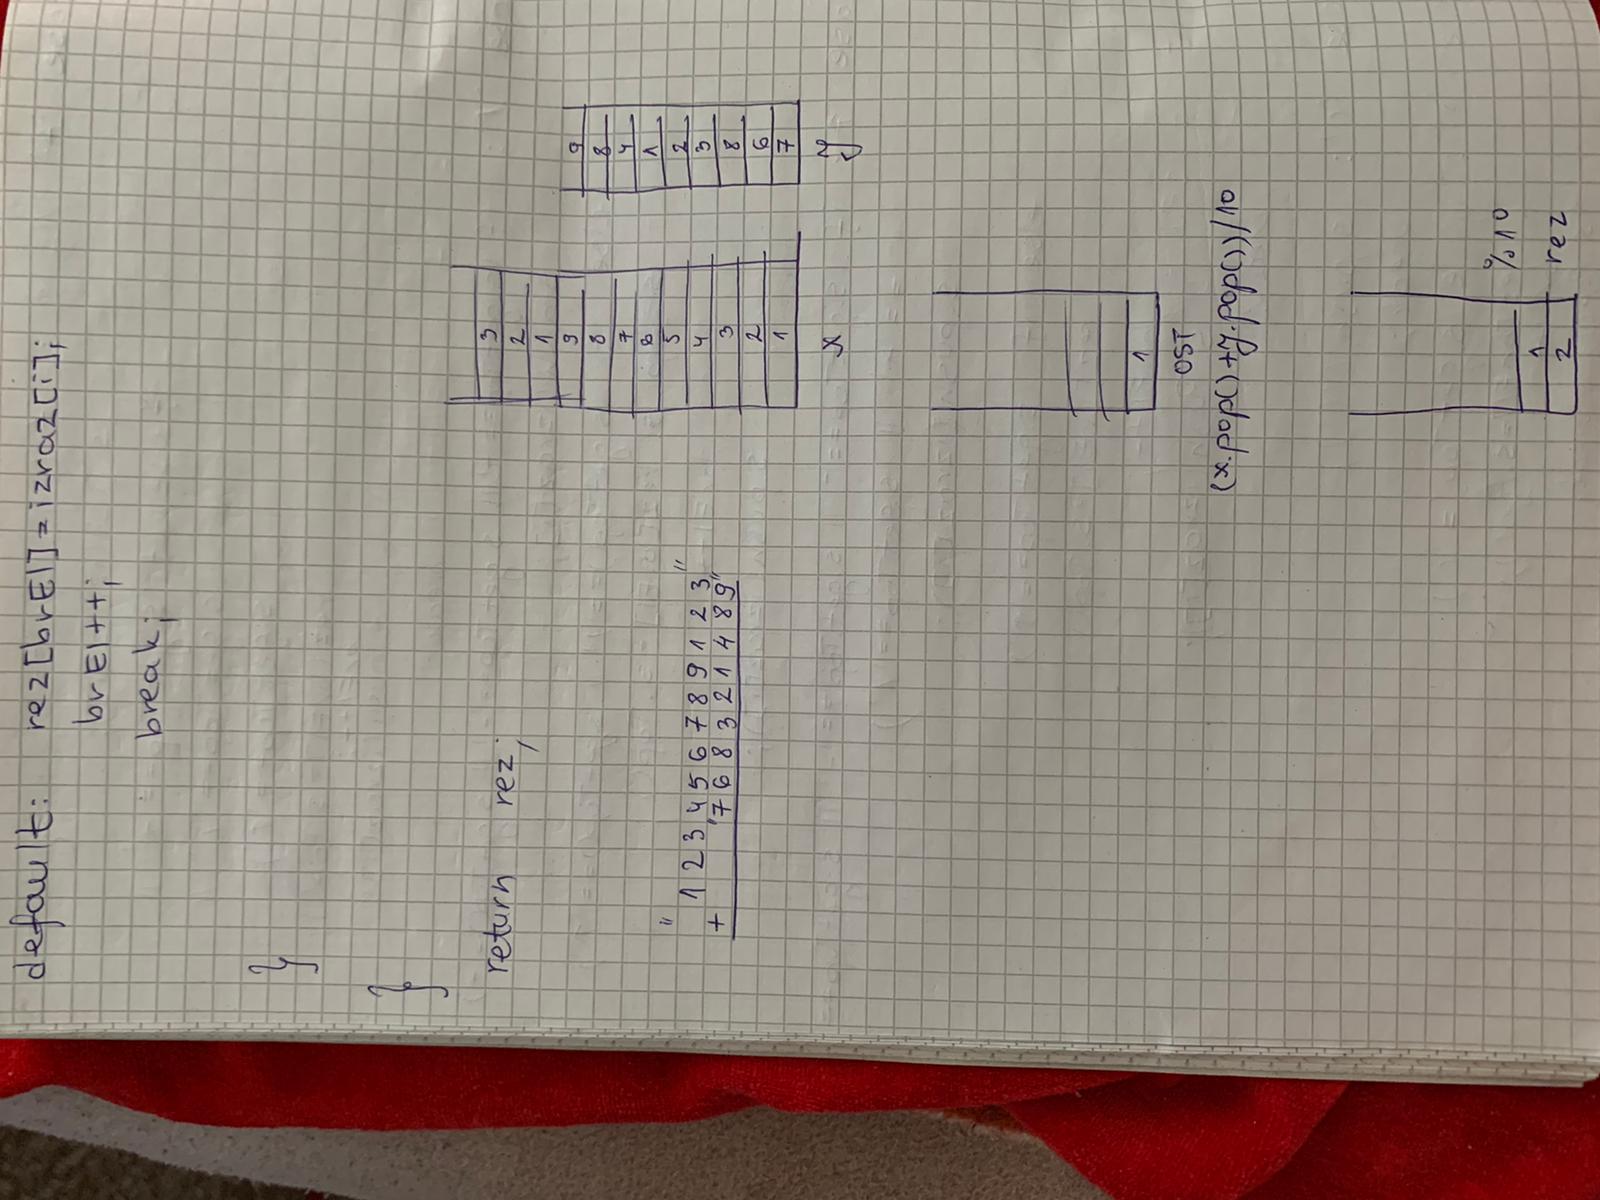 default: rez[brEl]=izraz[i];
brEl++;
break;
}
}
return rez;
" 1 2 3 4 5 6 7 8 9 1 2 3 "
+ "7 6 8 3 2 1 4 8 9"
3
2
1
9
8
7
6
5
4
3
2
1
x
9
8
4
1
2
3
8
6
7
y
1
OST
(x.pop()+y.pop())/10
%10
1
2
rez